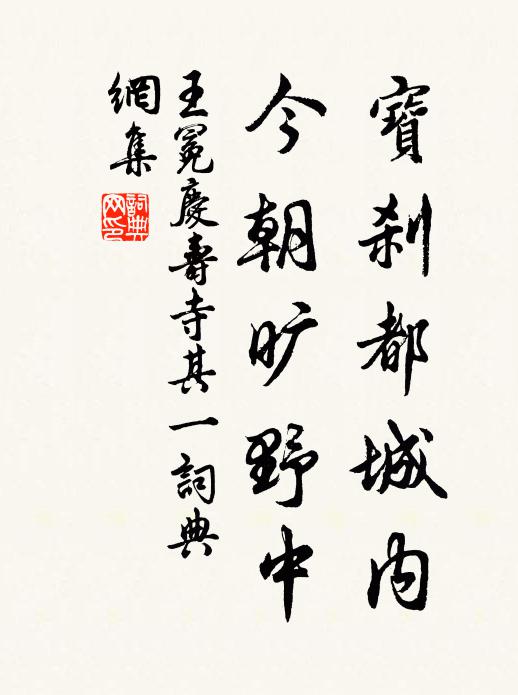 寶刹都城内
今朝旷野中
王冕慶壽寺其一詞典
網集
詞典
网印